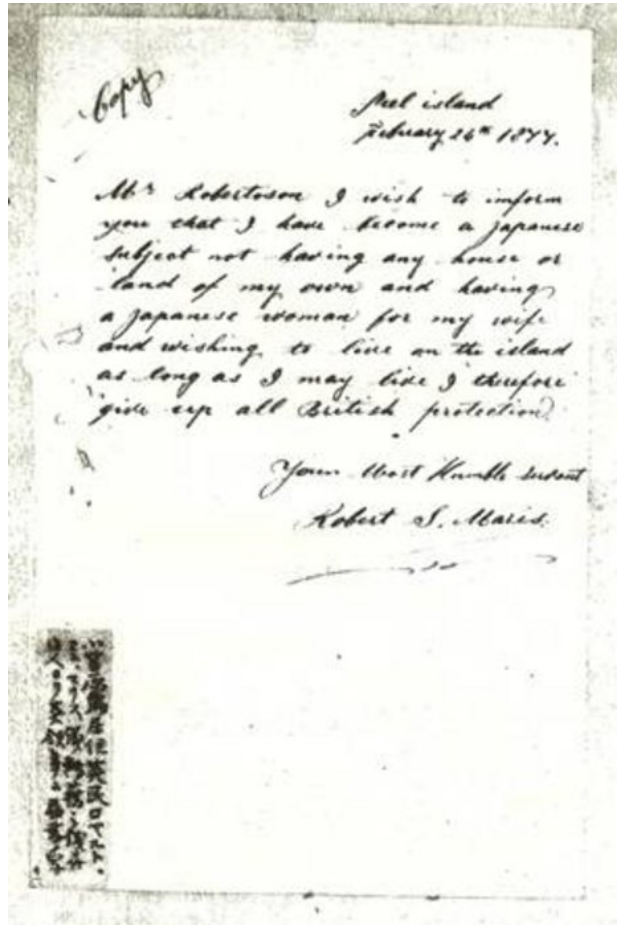 Copy
Peel island
February 26th 1877.
Mr Robertoson I wish to inform
you that I have become a japanese
subject not having any house or
land of my own and having
a japanese woman for my wife
and wishing to live on the island
as long as I may live I therefore
give up all British protection
Your Most Humble servant
Robert S. Maris.
小笠原島居住英民ロベルト、